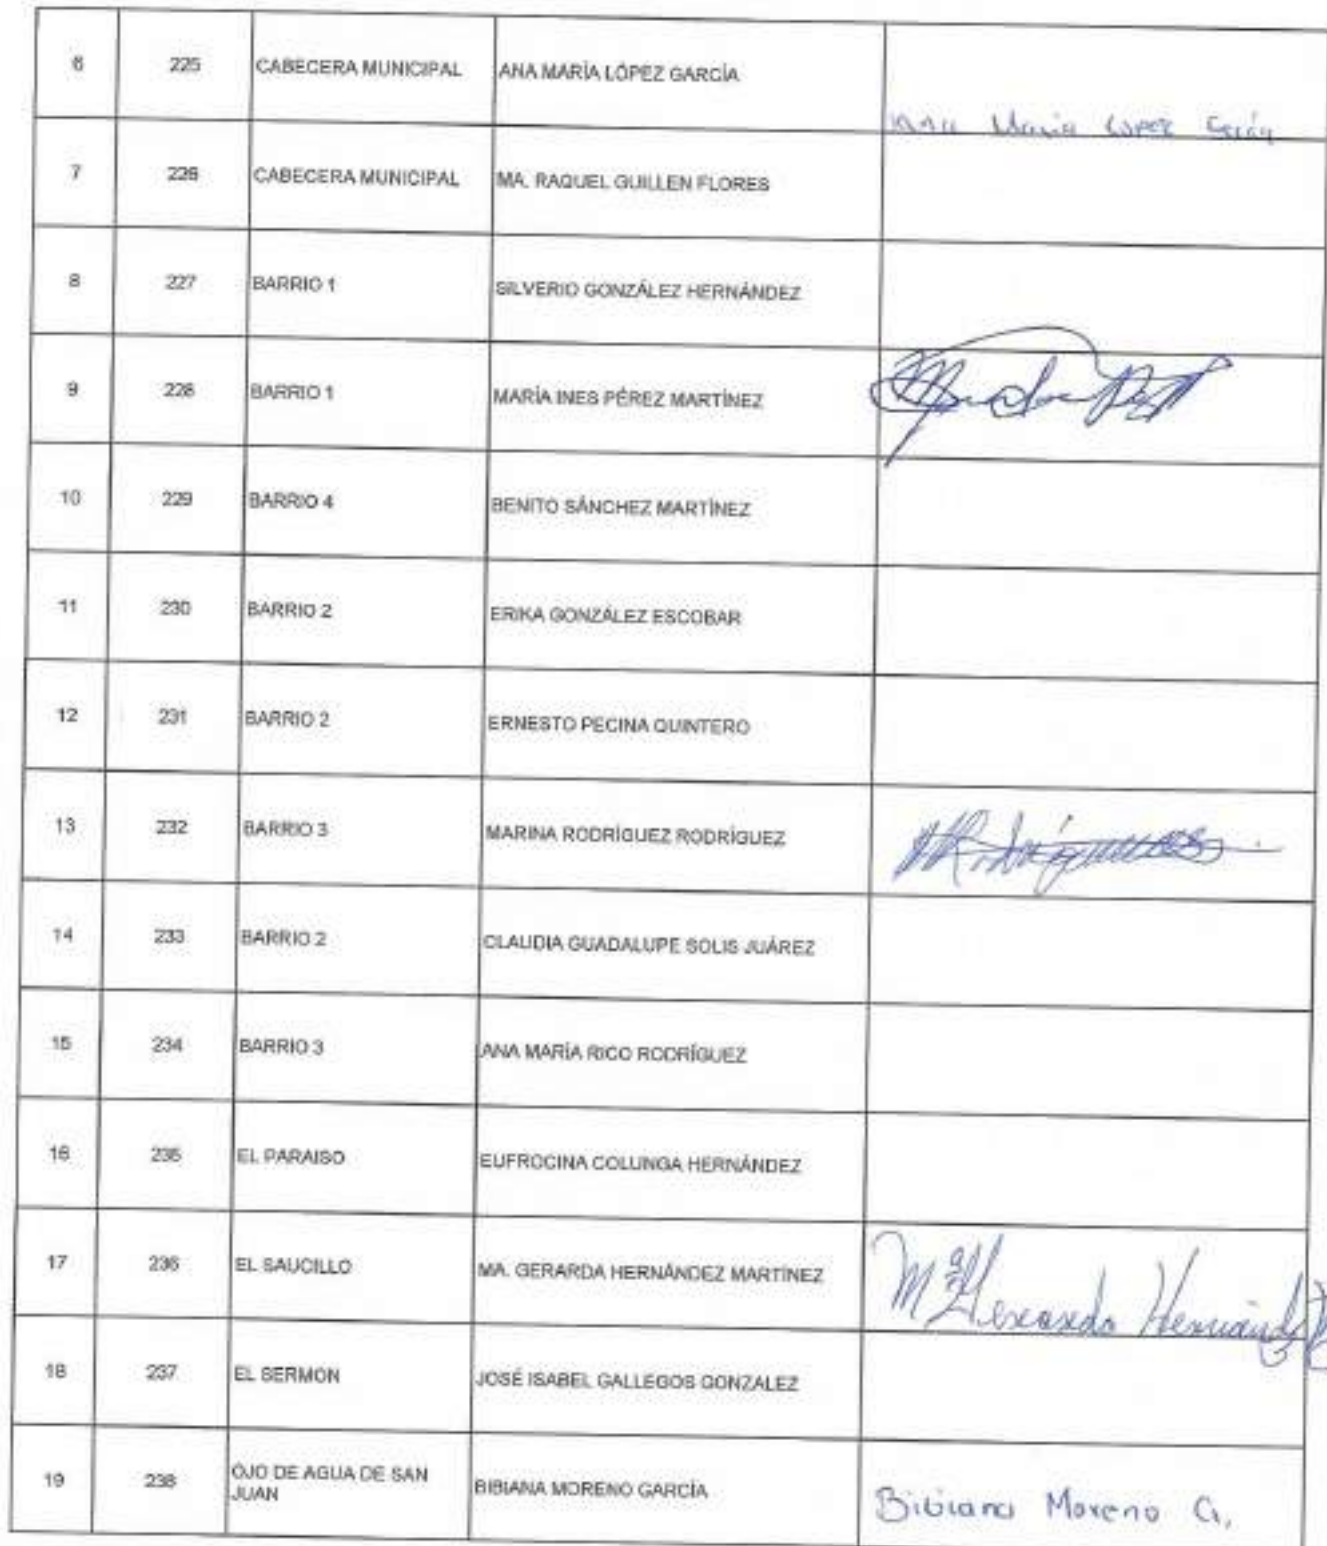 6 225 CABECERA MUNICIPAL ANA MARÍA LÓPEZ GARCÍA Ana Maria Lopez García
7 226 CABECERA MUNICIPAL MA. RAQUEL GUILLEN FLORES
8 227 BARRIO 1 SILVERIO GONZÁLEZ HERNÁNDEZ
9 228 BARRIO 1 MARÍA INES PÉREZ MARTÍNEZ
10 229 BARRIO 4 BENITO SÁNCHEZ MARTÍNEZ
11 230 BARRIO 2 ERIKA GONZÁLEZ ESCOBAR
12 231 BARRIO 2 ERNESTO PECINA QUINTERO
13 232 BARRIO 3 MARINA RODRÍGUEZ RODRÍGUEZ
14 233 BARRIO 2 CLAUDIA GUADALUPE SOLIS JUÁREZ
15 234 BARRIO 3 ANA MARÍA RICO RODRÍGUEZ
16 235 EL PARAISO EUFROCINA COLUNGA HERNÁNDEZ
17 236 EL SAUCILLO MA. GERARDA HERNÁNDEZ MARTÍNEZ Mª Gerarda Hernández
18 237 EL SERMON JOSÉ ISABEL GALLEGOS GONZALEZ
19 238 OJO DE AGUA DE SAN
JUAN BIBIANA MORENO GARCÍA Bibiana Moreno G.